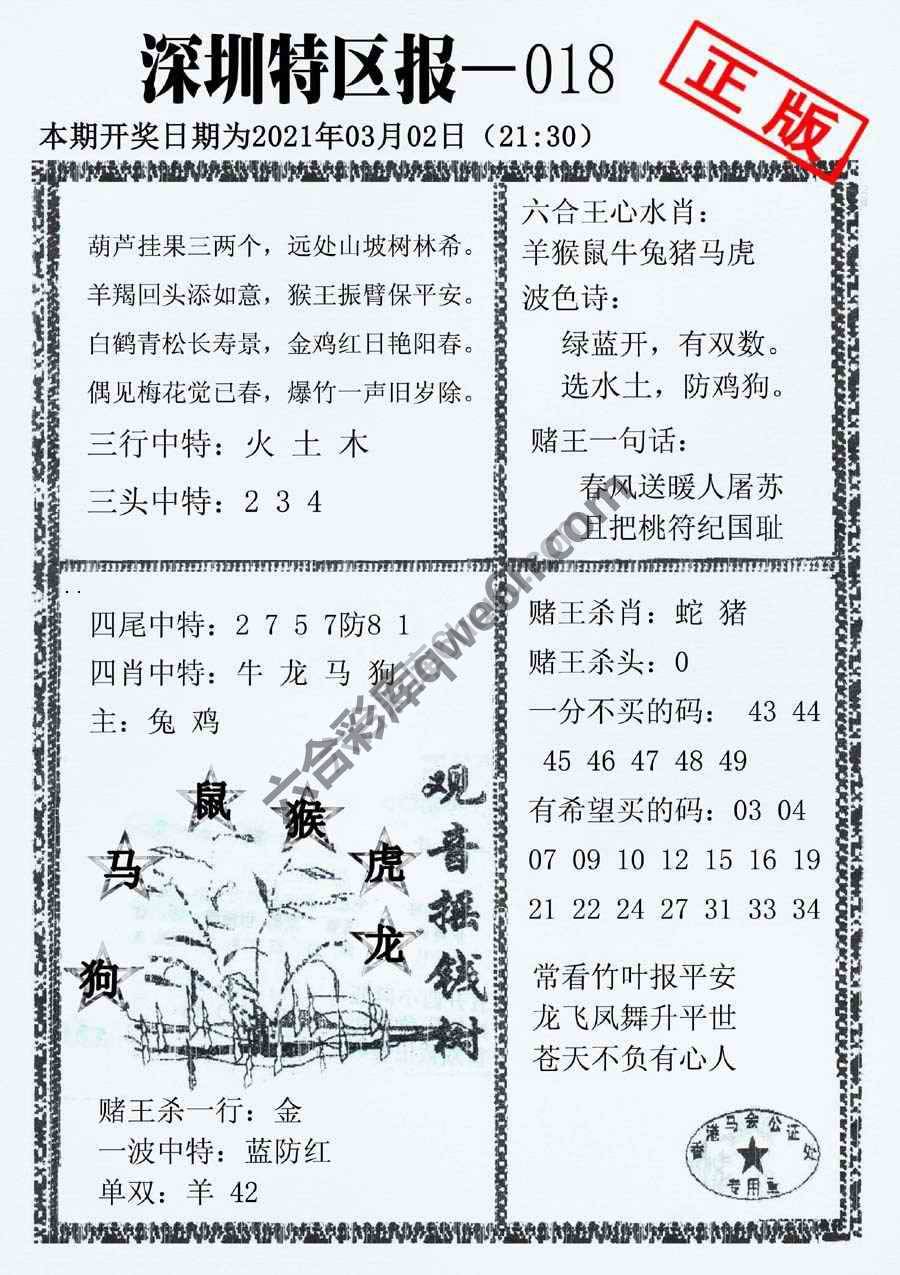 深圳特区报—018
正版
本期开奖日期为2021年03月02日（21:30）
葫芦挂果三两个，远处山坡树林希。
羊羯回头添如意，猴王振臂保平安。
白鹤青松长寿景，金鸡红日艳阳春。
偶见梅花觉已春，爆竹一声旧岁除。
三行中特：火 土 木
三头中特：2 3 4
六合王心水肖：
羊猴鼠牛兔猪马虎
波色诗：
绿蓝开，有双数。
选水土，防鸡狗。
赌王一句话：
春风送暖人屠苏
且把桃符纪国耻
四尾中特：2 7 5 7防8 1
四肖中特：牛 龙 马 狗
主：兔 鸡
鼠
猴
马
虎
龙
狗
观音摇钱树
赌王杀一行：金
一波中特：蓝防红
单双：羊 42
赌王杀肖：蛇 猪
赌王杀头：0
一分不买的码： 43 44
45 46 47 48 49
有希望买的码：03 04
07 09 10 12 15 16 19
21 22 24 27 31 33 34
常看竹叶报平安
龙飞凤舞升平世
苍天不负有心人
香港马会公证处
专用章
六合彩库qwe6h.com